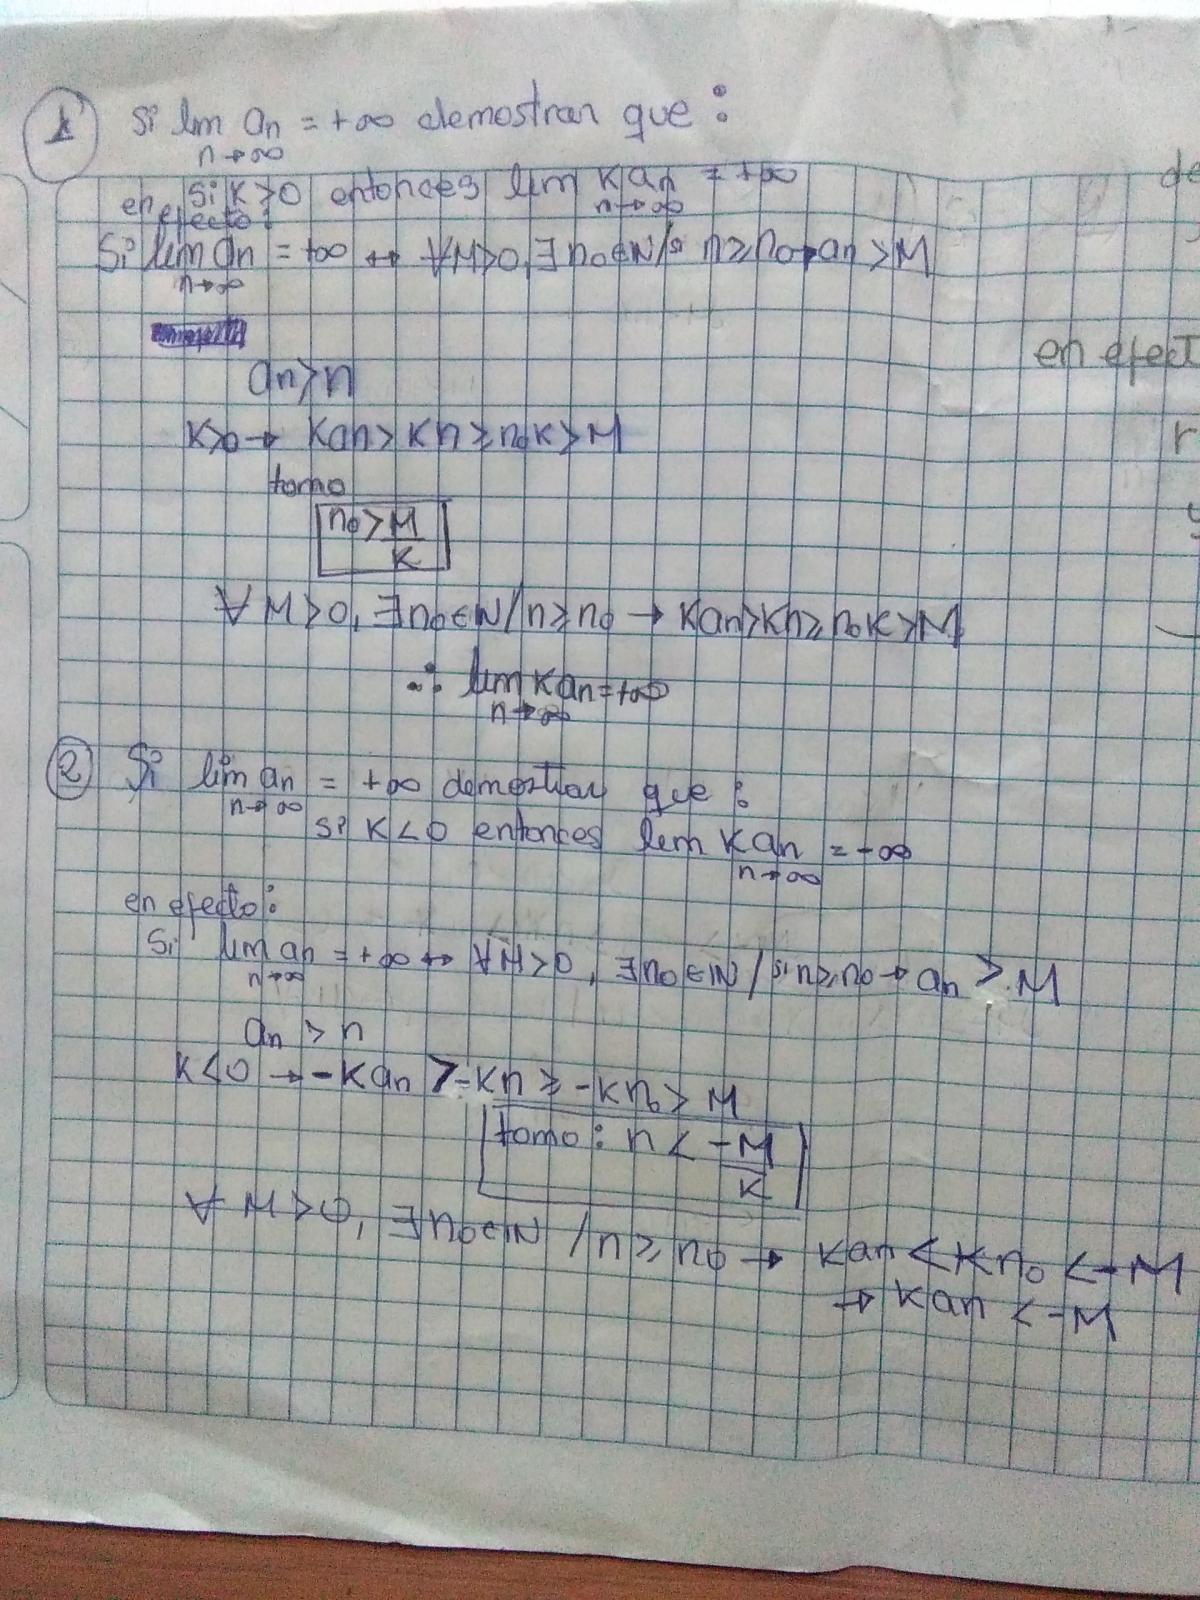 1
Si lim an = +∞ demostrar que:
n→∞
Si K>0 entonces lim Kan = +∞
n→∞
en efecto:
Si lim an = +∞ ↔ ∀M>0, ∃ n₀∈N/si n≥n₀→an>M
n→∞
an>n
K>0 → Kan>Kn≥n₀K>M
tomo
n₀>M/K
∀M>0, ∃n₀∈N/n≥n₀ → Kan>Kn≥n₀K>M
∴ lim Kan=+∞
n→∞
2 Si lim an = +∞ demostrar que:
n→∞
si K<0 entonces lim Kan = -∞
n→∞
en efecto:
Si lim an = +∞ ↔ ∀M>0, ∃n₀∈N/si n≥n₀→an > M
n→∞
an > n
K<0 → -Kan > -Kn ≥ -Kn₀ > M
tomo: n < -M/K
∀ M>0, ∃n₀∈N /n≥n₀ → Kan < Kn₀ < -M
→ Kan < -M
de
en efect
r
y